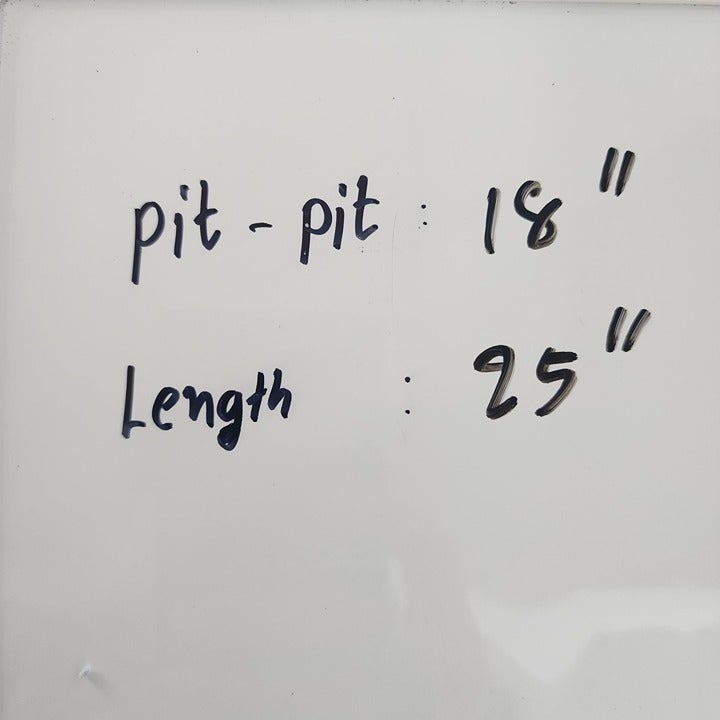 pit - pit : 18"
Length : 25"